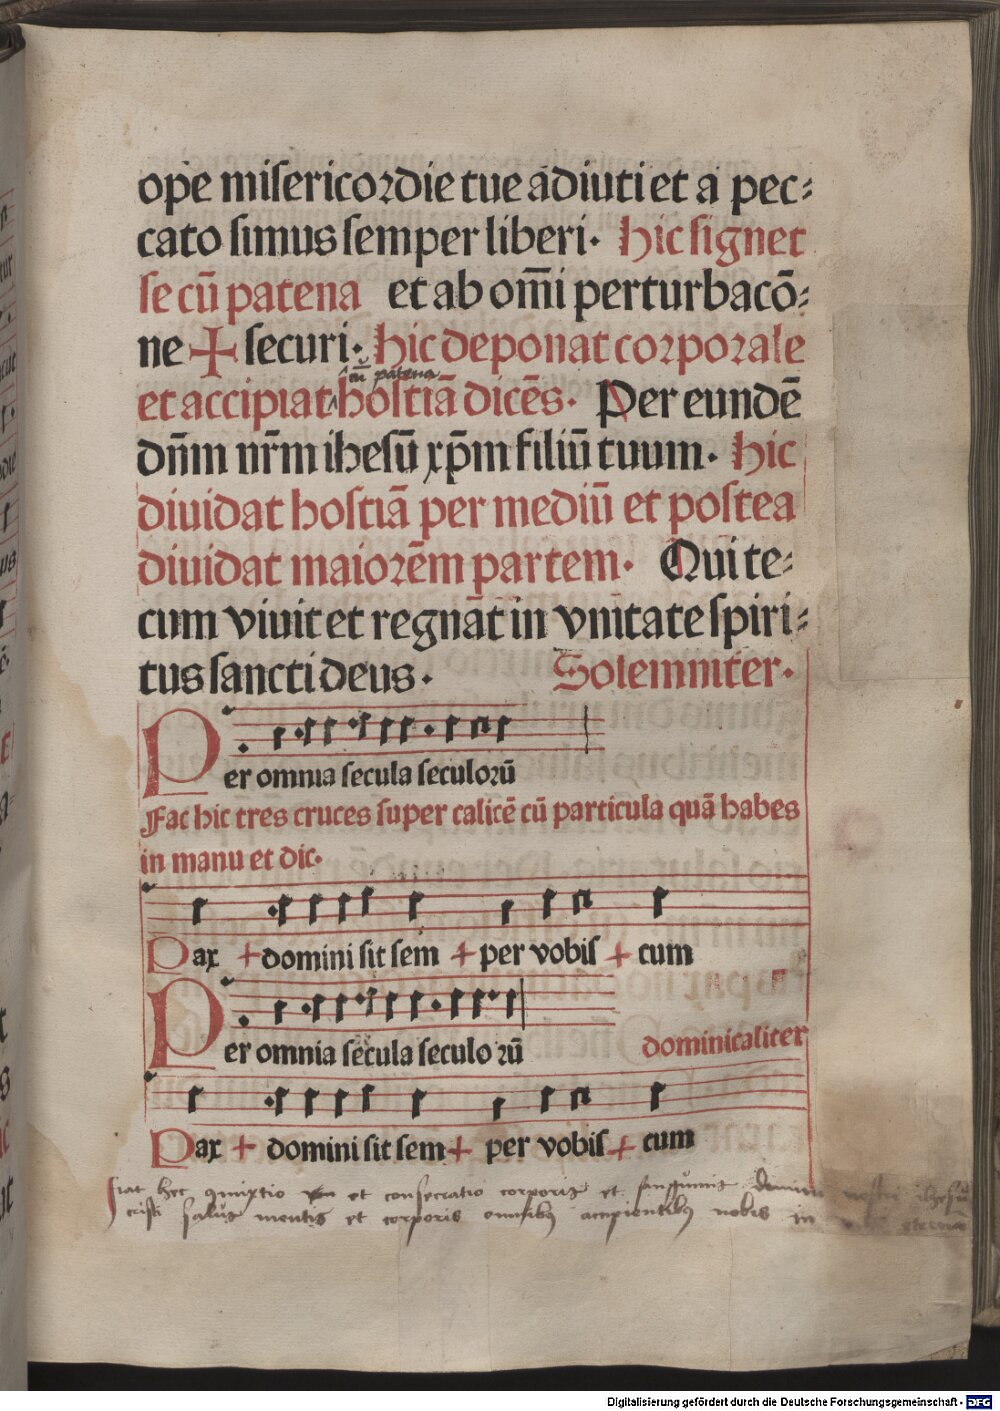 ope misericordie tue adiuti et a pec-
cato simus semper liberi. Hic signet
se cū patena et ab om̄i perturbacō-
ne + securi. Hic deponat corporale
cū patena
et accipiat hostiā dicēs. Per eundē
dn̄m nr̄m ihesū xp̄m filiū tuum. Hic
diuidat hostiā per mediū et postea
diuidat maiorēm partem. Qui te-
cum viuit et regnāt in vnitate spiri-
tus sancti deus. Solemniter.
Per omnia secula seculorū
Fac hic tres cruces super calicē cū particula quā habes
in manu et dic.
Pax + domini sit sem + per vobis + cum
Per omnia secula seculorū dominicaliter
Pax + domini sit sem + per vobis + cum
Fiat hec 9mixtio et consecratio corporis et sanguinis domini nostri ihesu
cristi salus mentis et corporis omnibus accipientibus nobis in eternā
Digitalisierung gefördert durch die Deutsche Forschungsgemeinschaft - DFG